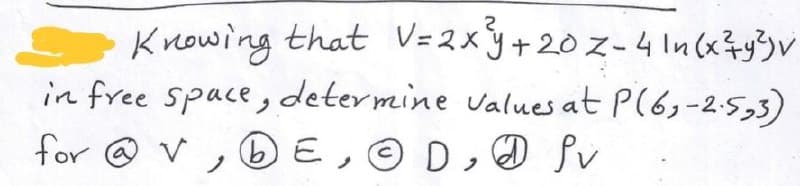 Knowing that V=2x²y+20z-4 ln(x²+y²)v
in free space, determine values at P(6,-2.5,3)
for ⓐ V, ⓑ E, ⓒ D, ⓓ ρv